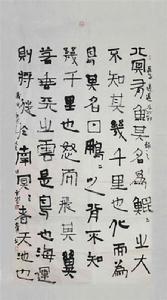 北冥有魚其名為鯤〻之大
不知其幾千里也化而為
鳥其名曰鵬〻之背不知
幾千里也怒而飛其翼
若垂天之雲是鳥也海運
則將徙於南冥〻者天池也